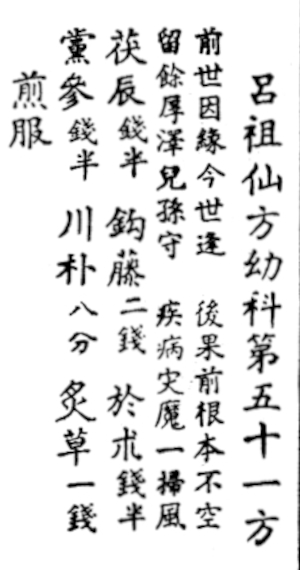 呂祖仙方幼科第五十一方
前世因緣今世逢 後果前根本不空
留餘厚澤兒孫守 疾病灾魔一掃風
茯辰錢半 鈎藤二錢 於朮錢半
黨參錢半 川朴八分 炙草一錢
煎服